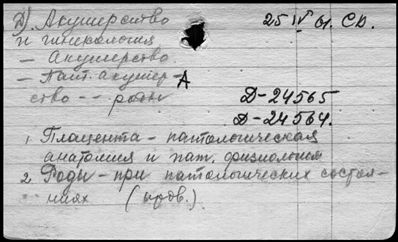 Д) Акушерство 25 IV 61. СД.
и гинекология
– Акушерство.
– Пат. акушер- А
ство – – роды
Д-24565
Д-24564.
1. Плацента – патологическая
анатомия и пат. физиология
2. Роды – при патологических состоя-
ниях (пров.)